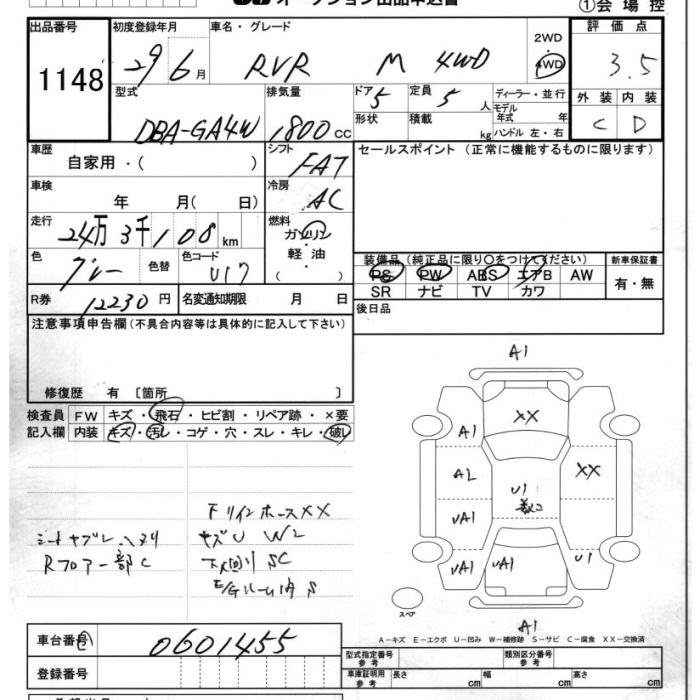 オークション出品申込書
①会場控
出品番号 初度登録年月 車名・グレード 2WD 評価点
1148 29 6月 RVR M 4WD 4WD 3.5
型式 排気量 ドア 5 定員 5人 ディーラー・並行 外装 内装
DBA-GA4W 1800cc 形状 積載 kg モデル年式 年 ハンドル 左・右 C D
車歴 シフト セールスポイント (正常に機能するものに限ります)
自家用・( ) FAT
車検 冷房
年 月( 日) AC
走行 燃料
24万3千108km ガソリン・軽油
色 色替 色コード 装備品 (純正品に限り○をつけてください) 新車保証書
グレー U17 PS PW ABS エアB AW 有・無
SR ナビ TV カワ
R券 12230円 名変通知期限 月 日 後日品
注意事項申告欄(不具合内容等は具体的に記入して下さい)
修復歴 有 〔箇所 〕
検査員 FW キズ・飛石・ヒビ割・リペア跡・×要
記入欄 内装 キズ・汚レ・コゲ・穴・スレ・キレ・破レ
A1
XX
A1
A2 XX
U1
UA1
UA1 UA1 U1
A1
スペア
下リインホースXX
キズU W2
下廻りSC
E/Gルーム内S
シートヤブレ
Rフロアー部C
A-キズ E-エクボ U-凹み W-補修跡 S-サビ C-腐食 XX-交換済
車台番号 0601455
登録番号
型式指定番号 参考 類別区分番号 参考
車庫証明用 参考 長さ cm 幅 cm 高さ cm